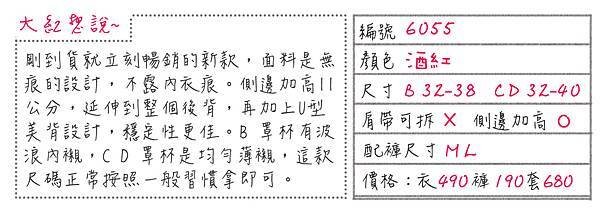 大紅想說~
剛到貨就立刻暢銷的新款，面料是無
痕的設計，不露內衣痕。側邊加高11
公分，延伸到整個後背，再加上U型
美背設計，穩定性更佳。B 罩杯有波
浪內襯，C D 罩杯是均勻薄襯，這款
尺碼正常按照一般習慣拿即可。
編號 6055
顏色 酒紅
尺寸 B 32-38 CD 32-40
肩帶可拆 X 側邊加高 O
配褲尺寸 M L
價格：衣490褲190套680